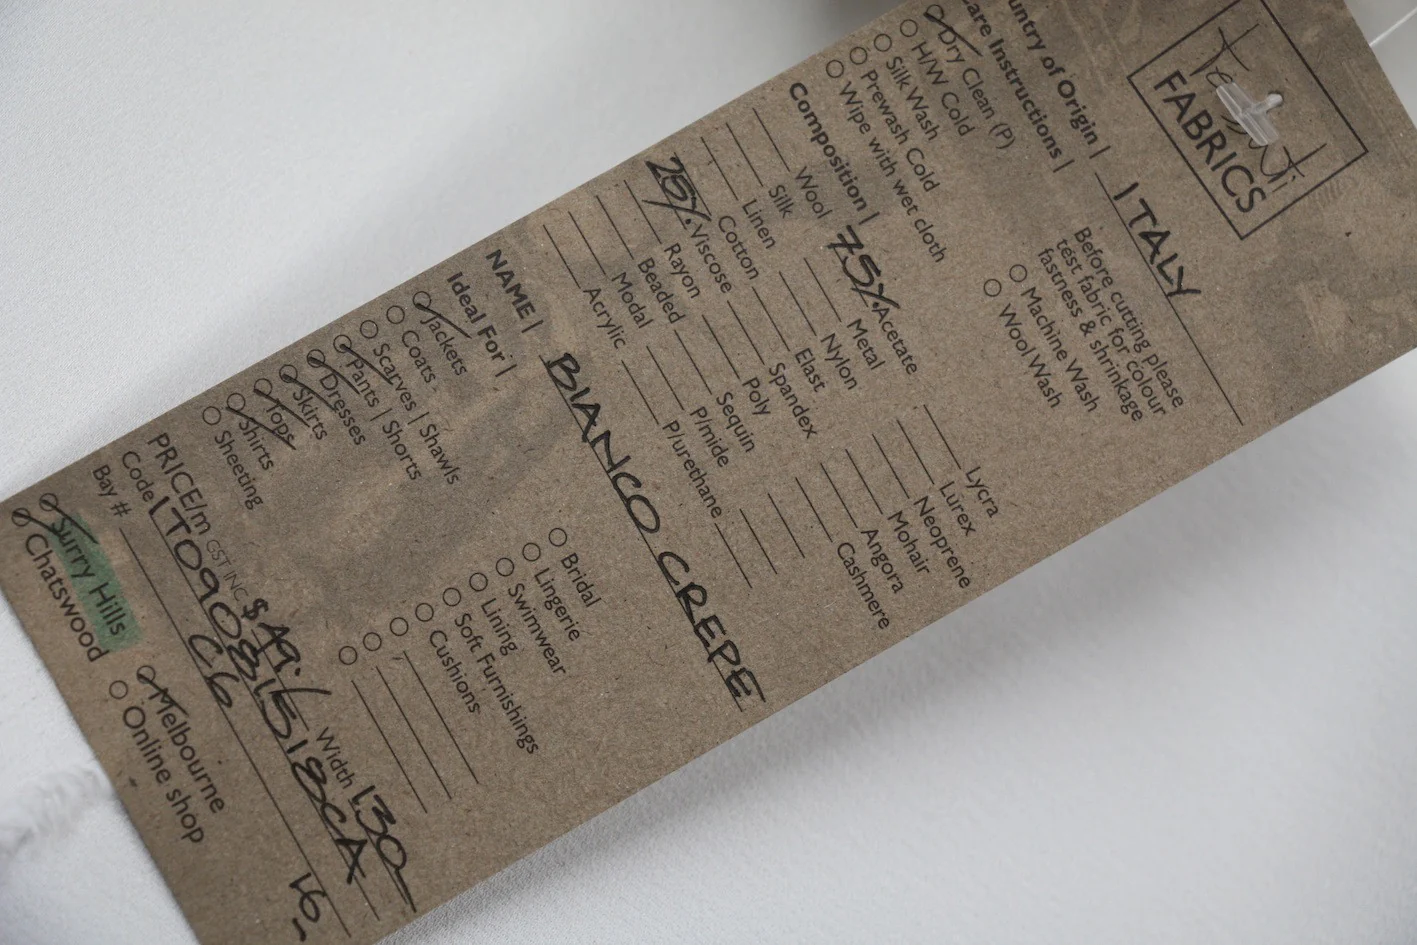 FABRICS
untry of Origin | ITALY
are Instructions |
Dry Clean (P)
H/W Cold
Silk Wash
Prewash Cold
Wipe with wet cloth
Before cutting please
test fabric for colour
fastness & shrinkage
Machine Wash
Wool Wash
Composition |
Wool 75% Acetate Lycra
Silk Metal Lurex
Linen Nylon Neoprene
Cotton Elast Mohair
25% Viscose Spandex Angora
Rayon Poly Cashmere
Beaded Sequin
Modal P/mide
Acrylic P/urethane
NAME | BIANCO CREPE
Ideal For |
Jackets Bridal
Coats Lingerie
Scarves | Shawls Swimwear
Pants | Shorts Lining
Dresses Soft Furnishings
Skirts Cushions
Tops
Shirts
Sheeting
PRICE/m GST INC $49./ Width 130
Code
Bay # C6 V6
Surry Hills Melbourne
Chatswood Online shop